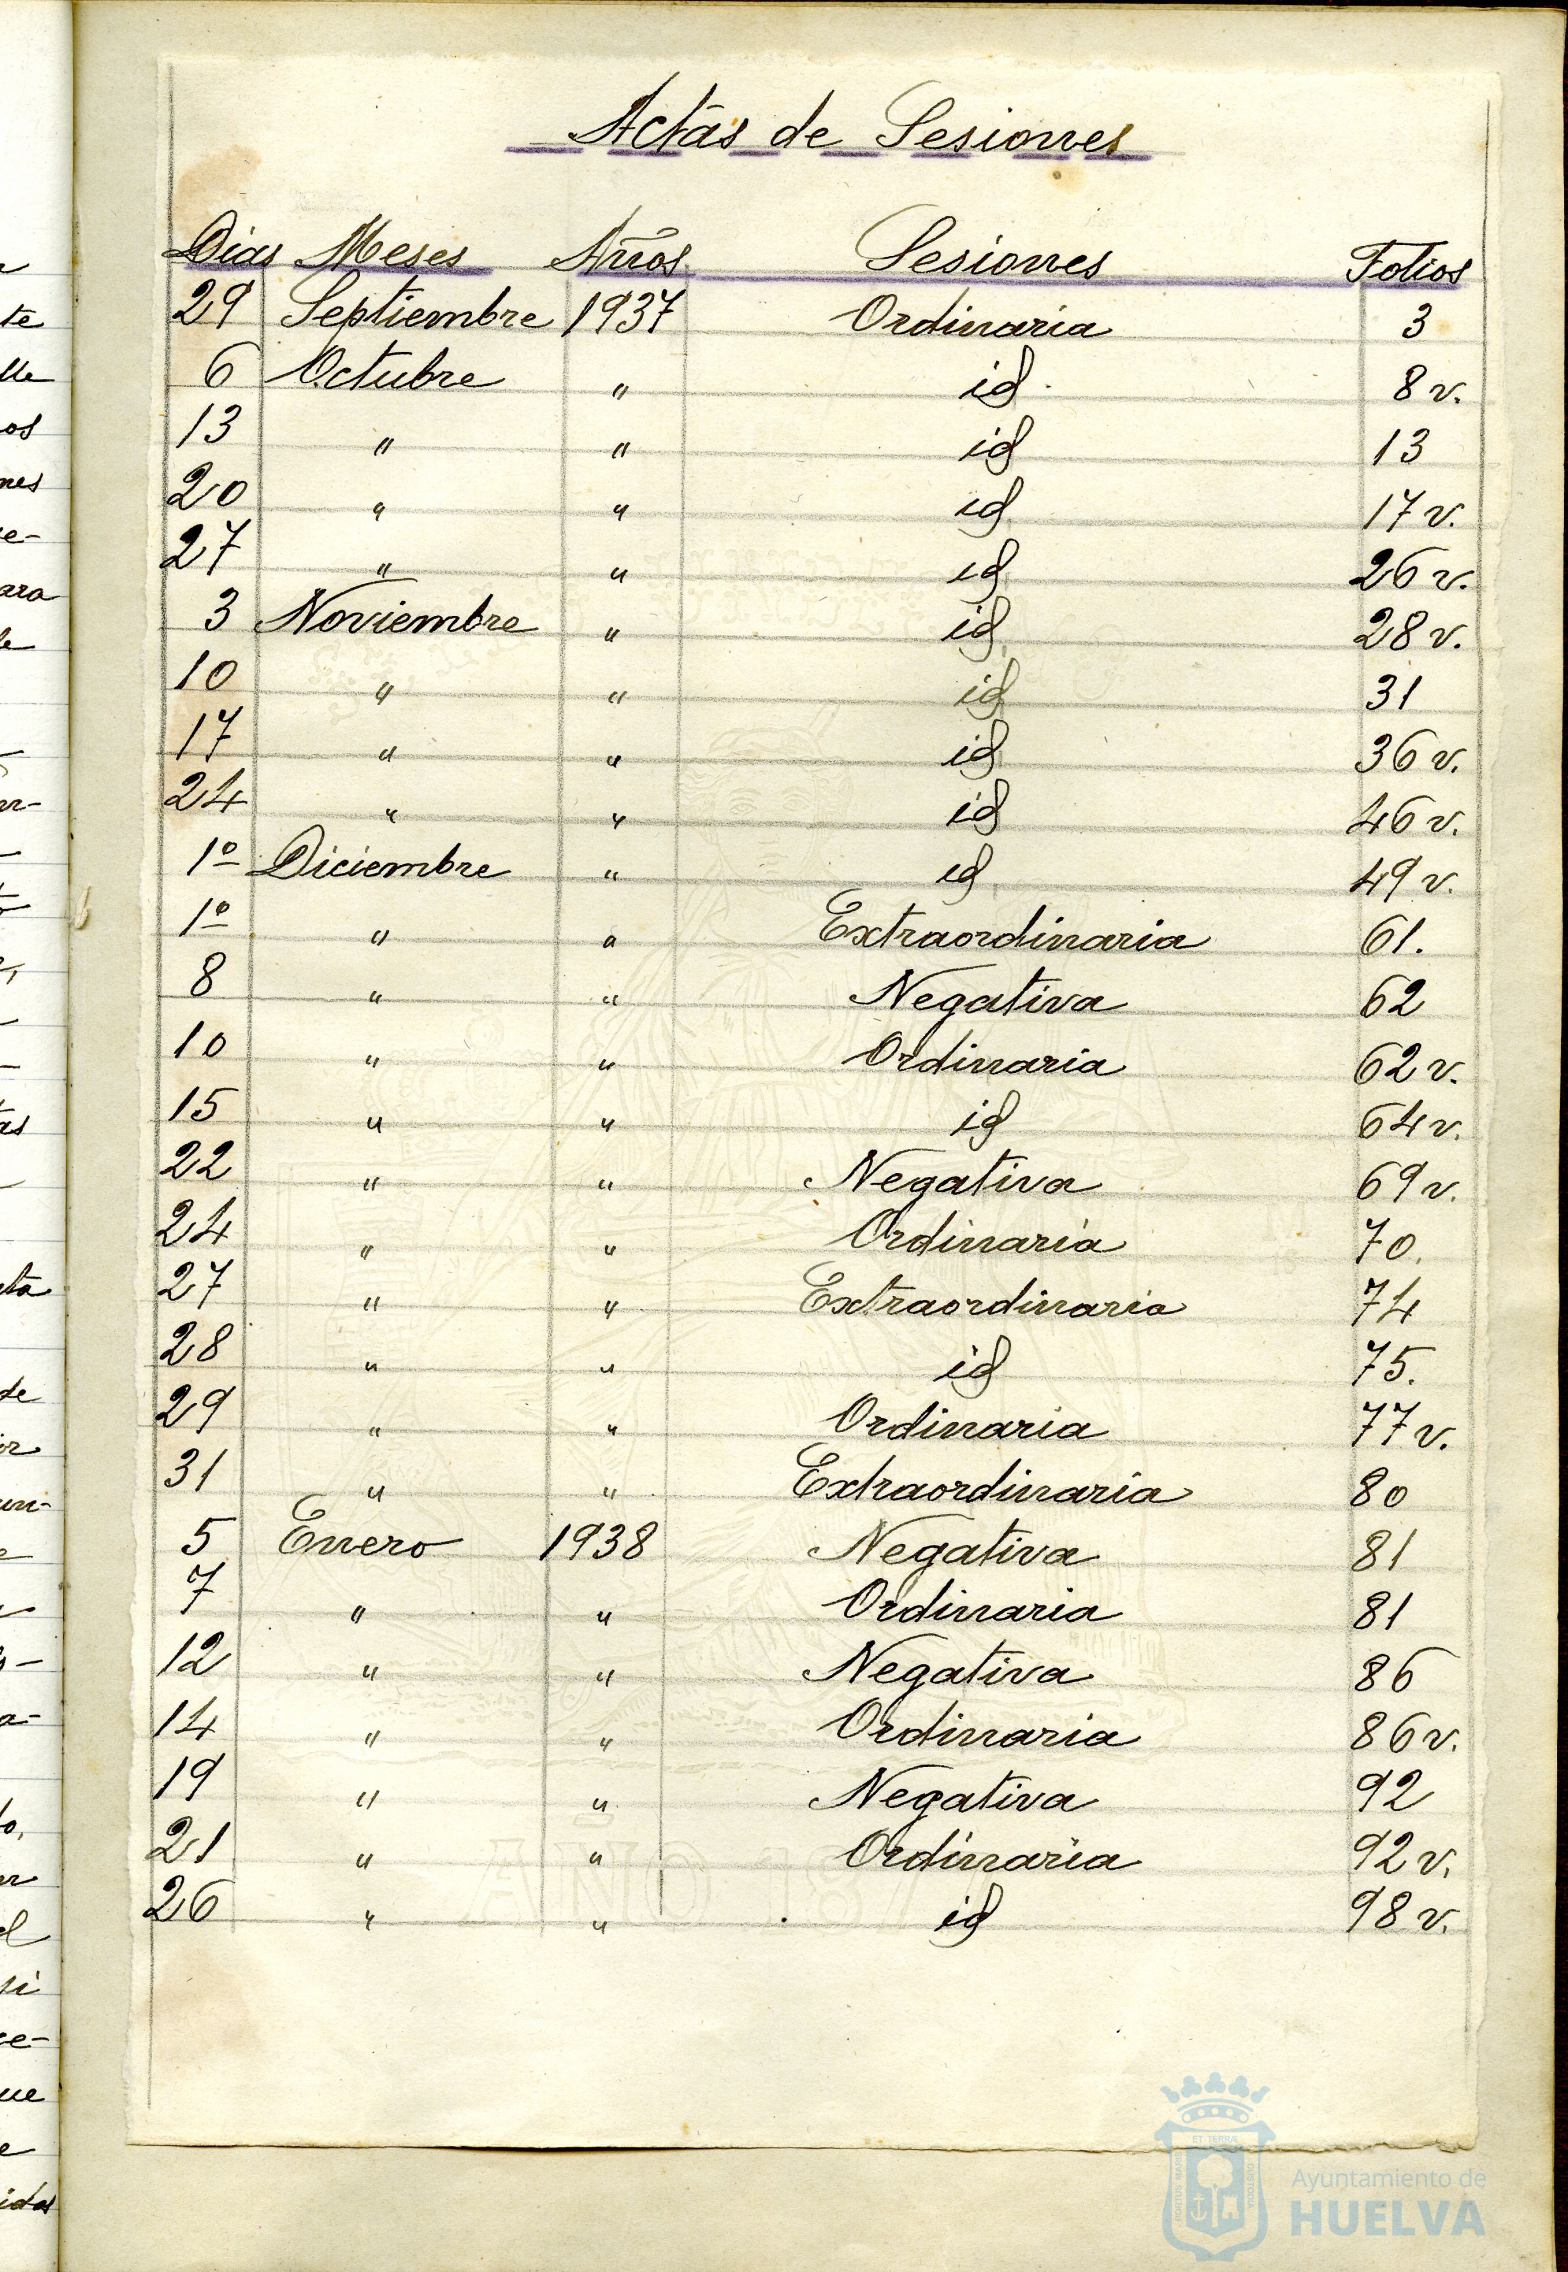 Actas de Sesiones
Dias Meses Años Sesiones Folios
29 Septiembre 1937 Ordinaria 3
6 Octubre " id 8 v.
13 " " id 13
20 " " id 17 v.
27 " " id 26 v.
3 Noviembre " id 28 v.
10 " " id 31
17 " " id 36 v.
24 " " id 46 v.
1º Diciembre " id 49 v.
1º " " Extraordinaria 61.
8 " " Negativa 62
10 " " Ordinaria 62 v.
15 " " id 64 v.
22 " " Negativa 69 v.
24 " " Ordinaria 70.
27 " " Extraordinaria 74
28 " " id 75.
29 " " Ordinaria 77 v.
31 " " Extraordinaria 80
5 Enero 1938 Negativa 81
7 " " Ordinaria 81
12 " " Negativa 86
14 " " Ordinaria 86 v.
19 " " Negativa 92
21 " " Ordinaria 92 v.
26 " " id 98 v.
Ayuntamiento de
HUELVA